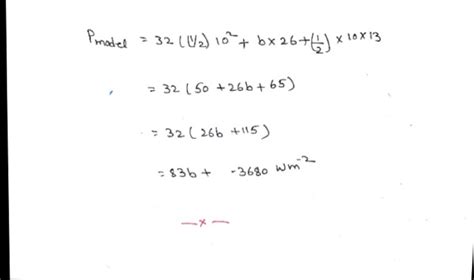 Pmodel = 32 (1/2) 10² + b × 26 + (1/2) × 10 × 13
= 32 ( 50 + 26b + 65)
= 32 ( 26b + 115)
= 83b + -3680 Wm⁻²
—x—